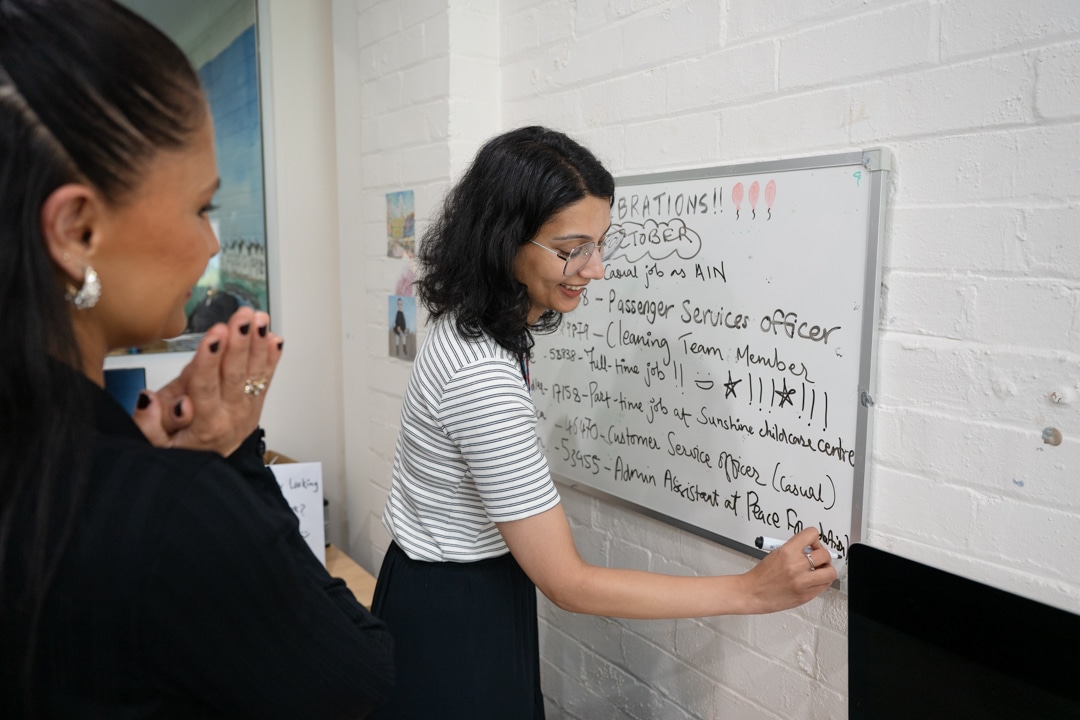 BRATIONS!!
OCTOBER
Casual job as AIN
8 - Passenger Services officer
- Cleaning Team Member
- 53838 - Full-time job !! ☺ ☆ !!! ☆ !!!
- 17158 - Part-time job at Sunshine childcare centre
- 46470 - Customer Service officer (casual)
- 53455 - Admin Assistant at Peace
Looking